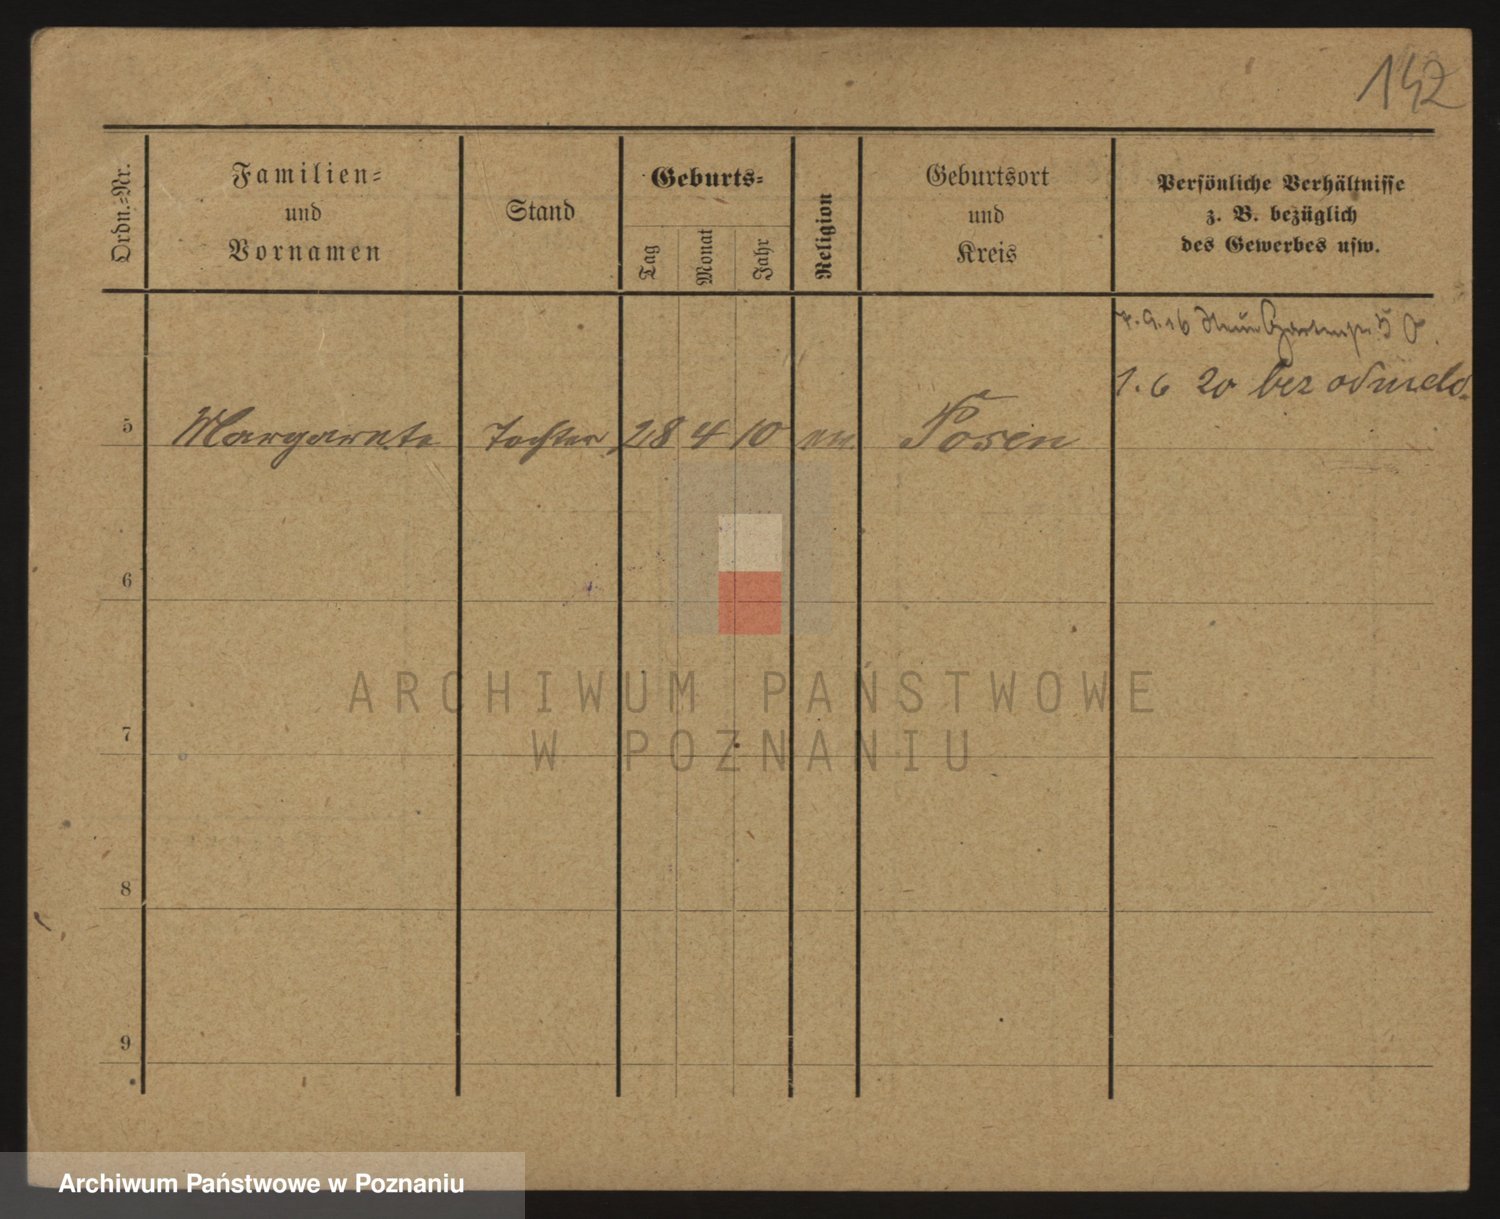 142
Ordn.-Nr.
Familien-
und
Vornamen
Stand
Geburts-
Tag
Monat
Jahr
Religion
Geburtsort
und
Kreis
Persönliche Verhältnisse
z. B. bezüglich
des Gewerbes usw.
7.9.16 Neue Gartenstr. 5
1.6 20 bez odmeld.
5 Margarete Tochter 28 4 10 ev. Posen
6
7
8
9
ARCHIWUM PAŃSTWOWE
W POZNANIU
Archiwum Państwowe w Poznaniu